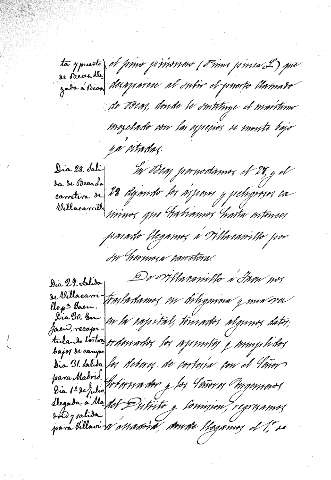 ta y puerto
de Beas. Lle-
gada á Beas
el pino piñonero (Pinus pinea, L) que
desaparece al subir el puerto llamado
de Beas, donde le sustituye el marítimo
mezclado con las especies de monte bajo
ya citadas.
Dia 28. Sali-
da de Beas la
carretera de
Villacarrillo
En Beas pernoctamos el 27, y el
28 dejando los ásperos y peligrosos ca-
minos que habiamos hasta entonces
pasado llegamos á Villacarrillo por
su hermosa carretera.
Dia 29. Salida
de Villacarri-
llo pª Jaen.
Dia 30. En
Jaen, recopi-
tula de los tra-
bajos de campo
Dia 31. Salida
para Madrid.
Dia 1º de Julio
llegada á Ma-
drid y salida
para Villavi
De Villacarrillo á Jaen nos
trasladamos en diligencia y una vez
en la capital, tomados algunos datos,
ordenados los apuntes y cumplidos
los deberes de cortesia con el Señor
Gobernador y los Señores Ingenieros
del Distrito y Comision, regresamos
á Madrid, donde llegamos el 1º, se